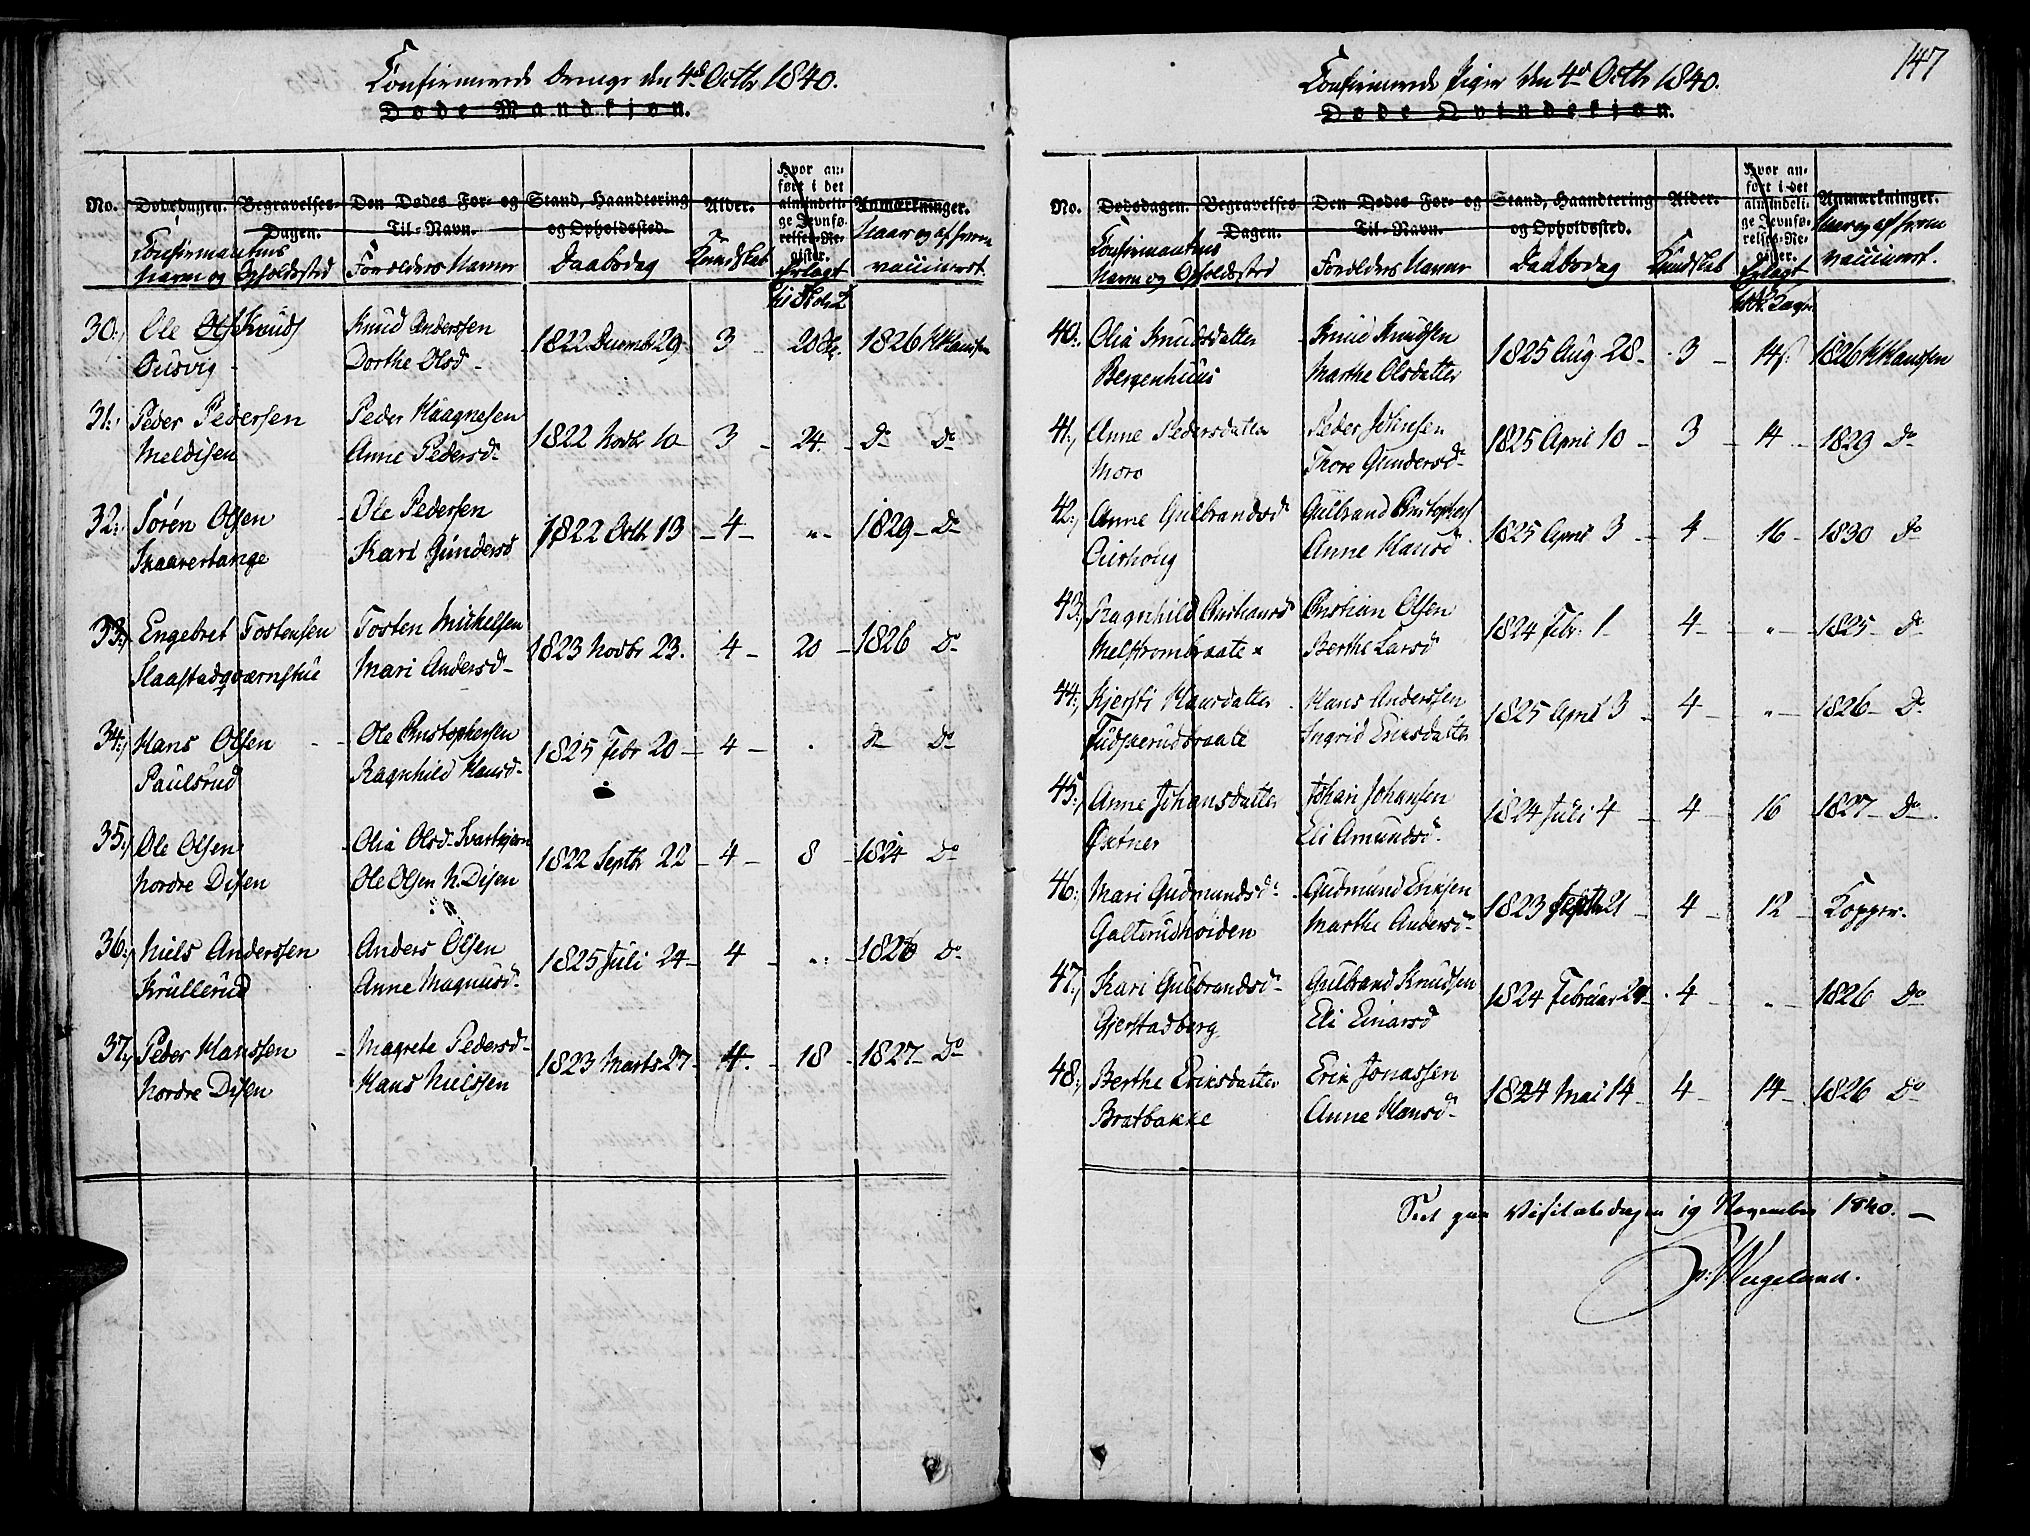 Confirmerede Drenge den 4de Octbr 1840.
Døde Mandkjøn.
No. Dødsdagen. Begravelses-Dagen. Den Dødes For- og Til-Navn. Stand, Haandtering og Opholdssted. Alder. Hvor anført i det almindelige Jevnførelses-Register. Anmærkninger.
Confirmantens Navn og Opholdsted Forældres Navne Daabsdag Kundskab Naar og af hvem vaccineret.
30. Ole Knuds Knud Anderssen 1822 Decemb 29 3 20 1826 K Klaussen
Dorthe Olsd
31. Peder Pedersen Peder Haagnesen 1822 Novbr 10 3 24. Do Do
Meldisen Anne Pedersd
32. Søren Olsen Ole Pedersen 1822 Octb 13 4 „ 1829 Do
Skaaretange Kari Gundersd
33. Engebret Tostensen Tosten Mickelsen 1823 Novbr 23. 4 20 1826 Do
Slaastadqværnstue Mari Andersd
34. Hans Olsen Ole Christophersen 1825 Febr 20 4 Do Do
Paulsrud Ragnhild Hansd
35. Ole Olsen Olia Olsd 1822 Septbr 22 4 8 1824 Do
Nordre Disen Ole Olsen N. Disen
36. Niels Anderssen Anders Olsen 1825 Juli 24 4 „ 1826 Do
Krullerud Anne Magnusd
37. Peder Hanssen Magrete Pedersd 1823 Marts 27 4. 18 1827 Do
Nordre Disen Hans Nielssen
147
Confirmerede Piger den 4de Octbr 1840.
Døde Qvindekjøn.
No. Dødsdagen. Begravelses Dagen. Den Dødes For- og Til-Navn. Stand, Haandtering og Opholdssted. Alder. Hvor anført i det almindelige Jevnførelses-Register. Anmærkninger.
Confirmantens Navn og Opholdsted Forældres Navne Daabsdag Kundskab Naar og af hvem vaccineret.
40. Olia Knudsdatter Knud Knudsen 1825 Aug 28 3 14 1826 K Klaussen
Bergenhuus Marthe Olsdatter
41. Anne Pedersdatter Peder Johnsen 1825 April 10 3 14 1829 Do
Moro Thore Gundersd
42. Anne Gulbrandsd Gulbrand Christophers 1825 April 3 4 16 1830 Do
Anne Hansd
43. Ragnhild Christiansd Christian Olsen 1824 Febr. 1 4 „ 1825 Do
Melstrombraate Berthe Larsd
44. Kjersti Hansdatter Hans Anderssen 1825 April 3 4 „ 1826 Do
Fudskerudbraate Ingrid Eriksdatter
45. Anne Johansdatter Johan Johansen 1824 Juli 4 4 16 1827 Do
Eli Amundsd
46. Mari Gudmundsd Gudmund Eriksen 1823 Septb 21 4 12 Kopper.
Galterudhøiden Marthe Andersd
47. Kari Gulbrandsd Gulbrand Knudsen 1824 Februar 4 „ 1826 Do
Gjerstadberg Eli Einarsd
48. Berthe Eriksdatter Erik Jonassen 1824 Mai 14 4 14 1826 Do
Bratbakke Anne Hansd
Seet paa Visitatsdagen 19 November 1840.
Wergeland.